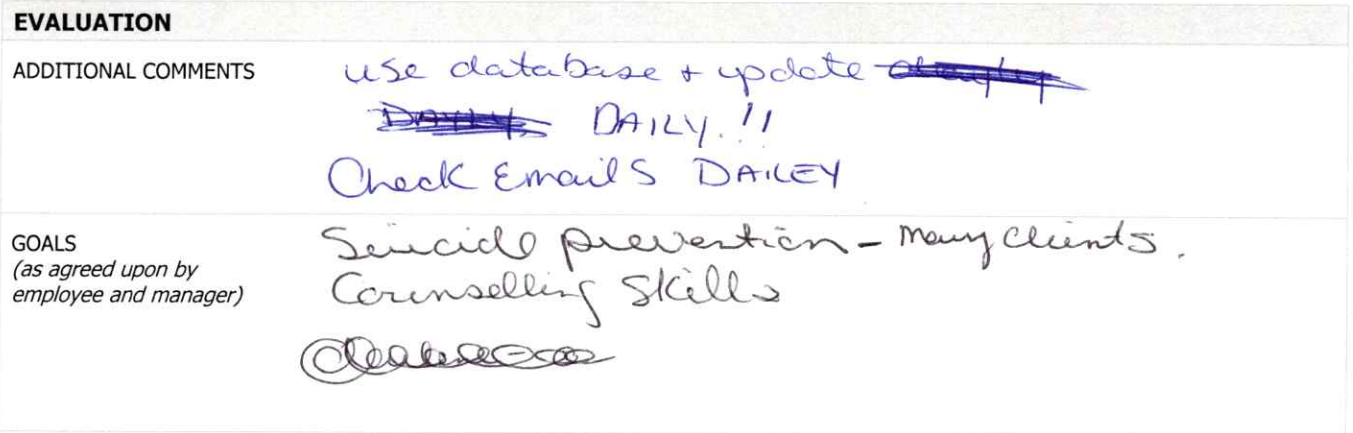 EVALUATION
ADDITIONAL COMMENTS
use database + update
DAILY.!!
Check Emails DAILEY
GOALS
(as agreed upon by
employee and manager)
Suicide prevention - many clients.
Counselling Skills